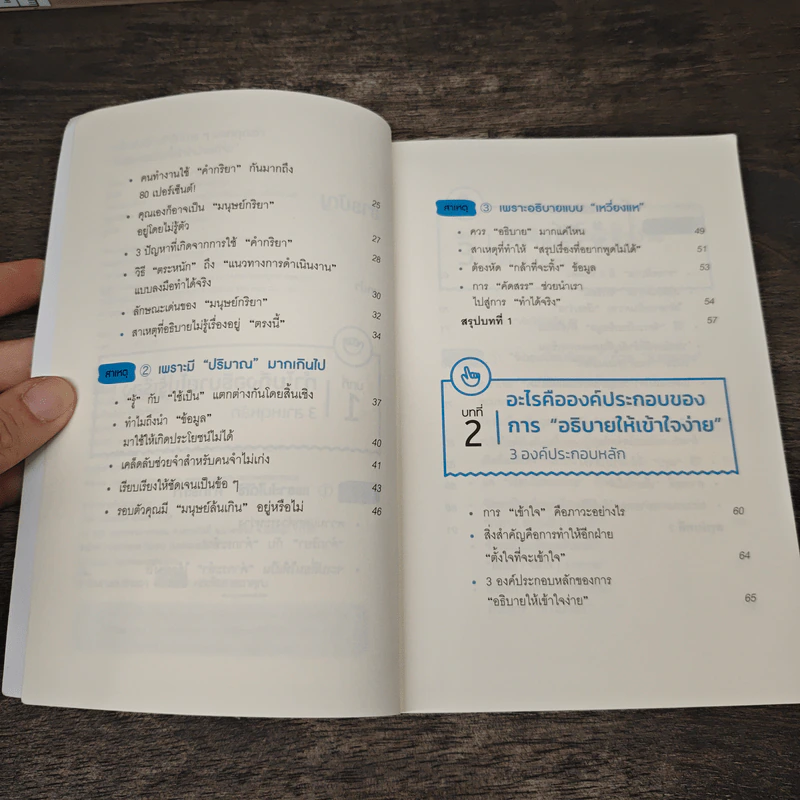 • คนทำงานใช้ “คำกริยา” กันมากถึง
80 เปอร์เซ็นต์! 25
• คุณเองก็อาจเป็น “มนุษย์กริยา”
อยู่โดยไม่รู้ตัว 27
• 3 ปัญหาที่เกิดจากการใช้ “คำกริยา” 28
• วิธี “ตระหนัก” ถึง “แนวทางการดำเนินงาน”
แบบลงมือทำได้จริง 30
• ลักษณะเด่นของ “มนุษย์กริยา” 32
• สาเหตุที่อธิบายไม่รู้เรื่องอยู่ “ตรงนี้” 34
สาเหตุ ② เพราะมี “ปริมาณ” มากเกินไป
• “รู้” กับ “ใช้เป็น” แตกต่างกันโดยสิ้นเชิง 37
• ทำไมถึงนำ “ข้อมูล”
มาใช้ให้เกิดประโยชน์ไม่ได้ 40
• เคล็ดลับช่วยจำสำหรับคนจำไม่เก่ง 41
• เรียบเรียงให้ชัดเจนเป็นข้อ ๆ 43
• รอบตัวคุณมี “มนุษย์ล้นเกิน” อยู่หรือไม่ 46
สาเหตุ ③ เพราะอธิบายแบบ “เหวี่ยงแห”
• ควร “อธิบาย” มากแค่ไหน 49
• สาเหตุที่ทำให้ “สรุปเรื่องที่อยากพูดไม่ได้” 51
• ต้องหัด “กล้าที่จะทิ้ง” ข้อมูล 53
• การ “คัดสรร” ช่วยนำเรา
ไปสู่การ “ทำได้จริง” 54
สรุปบทที่ 1 57
บทที่
2
อะไรคือองค์ประกอบของ
การ “อธิบายให้เข้าใจง่าย”
3 องค์ประกอบหลัก
• การ “เข้าใจ” คือภาวะอย่างไร 60
• สิ่งสำคัญคือการทำให้อีกฝ่าย
“ตั้งใจที่จะเข้าใจ” 64
• 3 องค์ประกอบหลักของการ
“อธิบายให้เข้าใจง่าย” 65